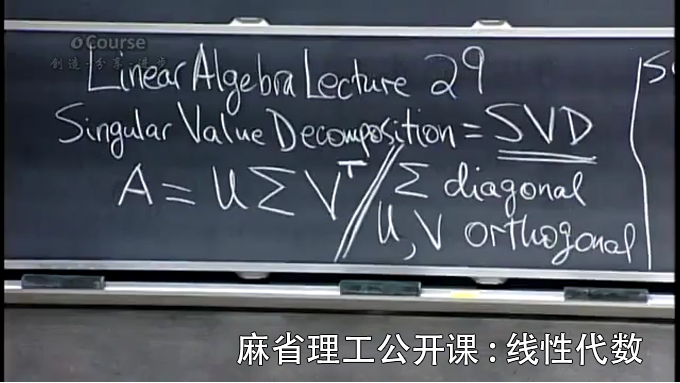 oCourse
创造·分享·进步
Linear Algebra Lecture 29
Singular Value Decomposition = SVD
A = U Σ Vᵀ // Σ diagonal
U, V orthogonal
麻省理工公开课：线性代数